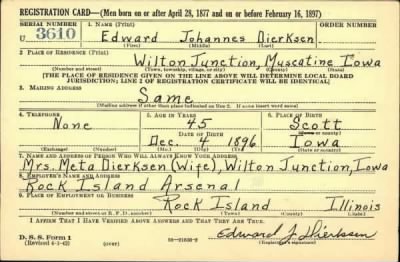 REGISTRATION CARD—(Men born on or after April 28, 1877 and on or before February 16, 1897)
SERIAL NUMBER 1. NAME (Print) ORDER NUMBER
U 3610 Edward Johannes Dierksen
(First) (Middle) (Last)
2. PLACE OF RESIDENCE (Print)
Wilton Junction, Muscatine Iowa
(Number and street) (Town, township, village, or city) (County) (State)
[THE PLACE OF RESIDENCE GIVEN ON THE LINE ABOVE WILL DETERMINE LOCAL BOARD
JURISDICTION; LINE 2 OF REGISTRATION CERTIFICATE WILL BE IDENTICAL]
3. MAILING ADDRESS
Same
[Mailing address if other than place indicated on line 2. If same insert word same]
4. TELEPHONE 5. AGE IN YEARS 6. PLACE OF BIRTH
None 45 Scott
DATE OF BIRTH (Town or county)
Dec. 4 1896 Iowa
(Exchange) (Number) (Mo.) (Day) (Yr.) (State or country)
7. NAME AND ADDRESS OF PERSON WHO WILL ALWAYS KNOW YOUR ADDRESS
Mrs. Meta Dierksen (Wife), Wilton Junction, Iowa
8. EMPLOYER'S NAME AND ADDRESS
Rock Island Arsenal
9. PLACE OF EMPLOYMENT OR BUSINESS
Rock Island Illinois
(Number and street or R. F. D. number) (Town) (County) (State)
I AFFIRM THAT I HAVE VERIFIED ABOVE ANSWERS AND THAT THEY ARE TRUE.
D. S. S. Form 1
(Revised 4-1-42) (over) Edward J Dierksen
(Registrant's signature)